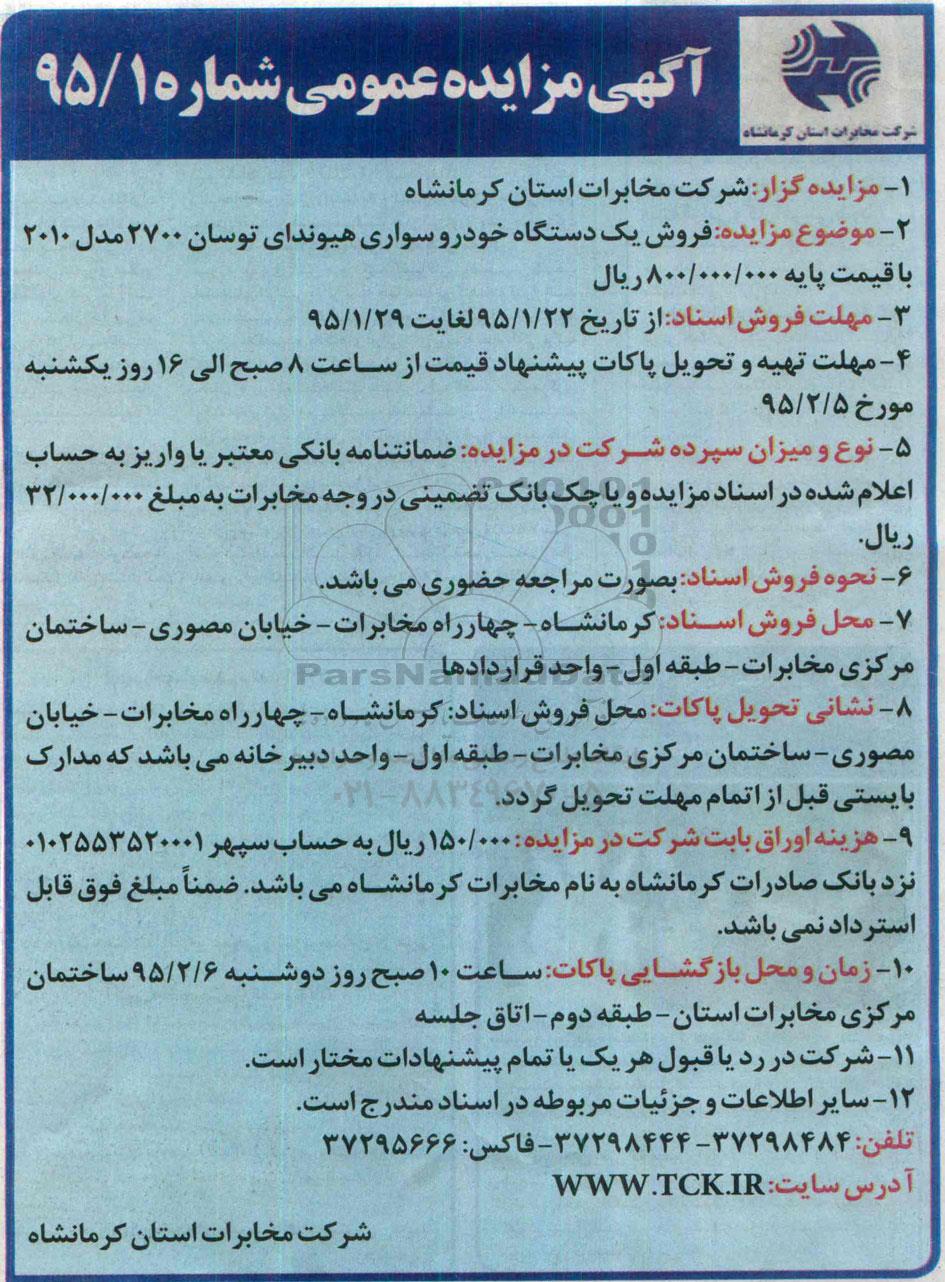 شرکت مخابرات استان کرمانشاه
آگهی مزایده عمومی شماره ۹۵/۱
۱- مزایده گزار: شرکت مخابرات استان کرمانشاه
۲- موضوع مزایده: فروش یک دستگاه خودرو سواری هیوندای توسان ۲۷۰۰ مدل ۲۰۱۰
با قیمت پایه ۸۰۰/۰۰۰/۰۰۰ ریال
۳- مهلت فروش اسناد: از تاریخ ۹۵/۱/۲۲ لغایت ۹۵/۱/۲۹
۴- مهلت تهیه و تحویل پاکات پیشنهاد قیمت از ساعت ۸ صبح الی ۱۶ روز یکشنبه
مورخ ۹۵/۲/۵
۵- نوع و میزان سپرده شرکت در مزایده: ضمانتنامه بانکی معتبر یا واریز به حساب
اعلام شده در اسناد مزایده و یا چک بانک تضمینی در وجه مخابرات به مبلغ ۳۲/۰۰۰/۰۰۰
ریال.
۶- نحوه فروش اسناد: بصورت مراجعه حضوری می باشد.
۷- محل فروش اسناد: کرمانشاه - چهارراه مخابرات - خیابان مصوری - ساختمان
مرکزی مخابرات - طبقه اول - واحد قراردادها
ParsNamadData
۸- نشانی تحویل پاکات: محل فروش اسناد: کرمانشاه - چهارراه مخابرات - خیابان
مصوری - ساختمان مرکزی مخابرات - طبقه اول - واحد دبیرخانه می باشد که مدارک
بایستی قبل از اتمام مهلت تحویل گردد.
۹- هزینه اوراق بابت شرکت در مزایده: ۱۵۰/۰۰۰ ریال به حساب سپهر ۰۱۰۲۵۵۳۵۲۰۰۰۱
نزد بانک صادرات کرمانشاه به نام مخابرات کرمانشاه می باشد. ضمناً مبلغ فوق قابل
استرداد نمی باشد.
۱۰- زمان و محل بازگشایی پاکات: ساعت ۱۰ صبح روز دوشنبه ۹۵/۲/۶ ساختمان
مرکزی مخابرات استان - طبقه دوم - اتاق جلسه
۱۱- شرکت در رد یا قبول هر یک یا تمام پیشنهادات مختار است.
۱۲- سایر اطلاعات و جزئیات مربوطه در اسناد مندرج است.
تلفن: ۳۷۲۹۸۴۸۴ - ۳۷۲۹۸۴۴۴ - فاکس: ۳۷۲۹۵۶۶۶
آدرس سایت: WWW.TCK.IR
شرکت مخابرات استان کرمانشاه